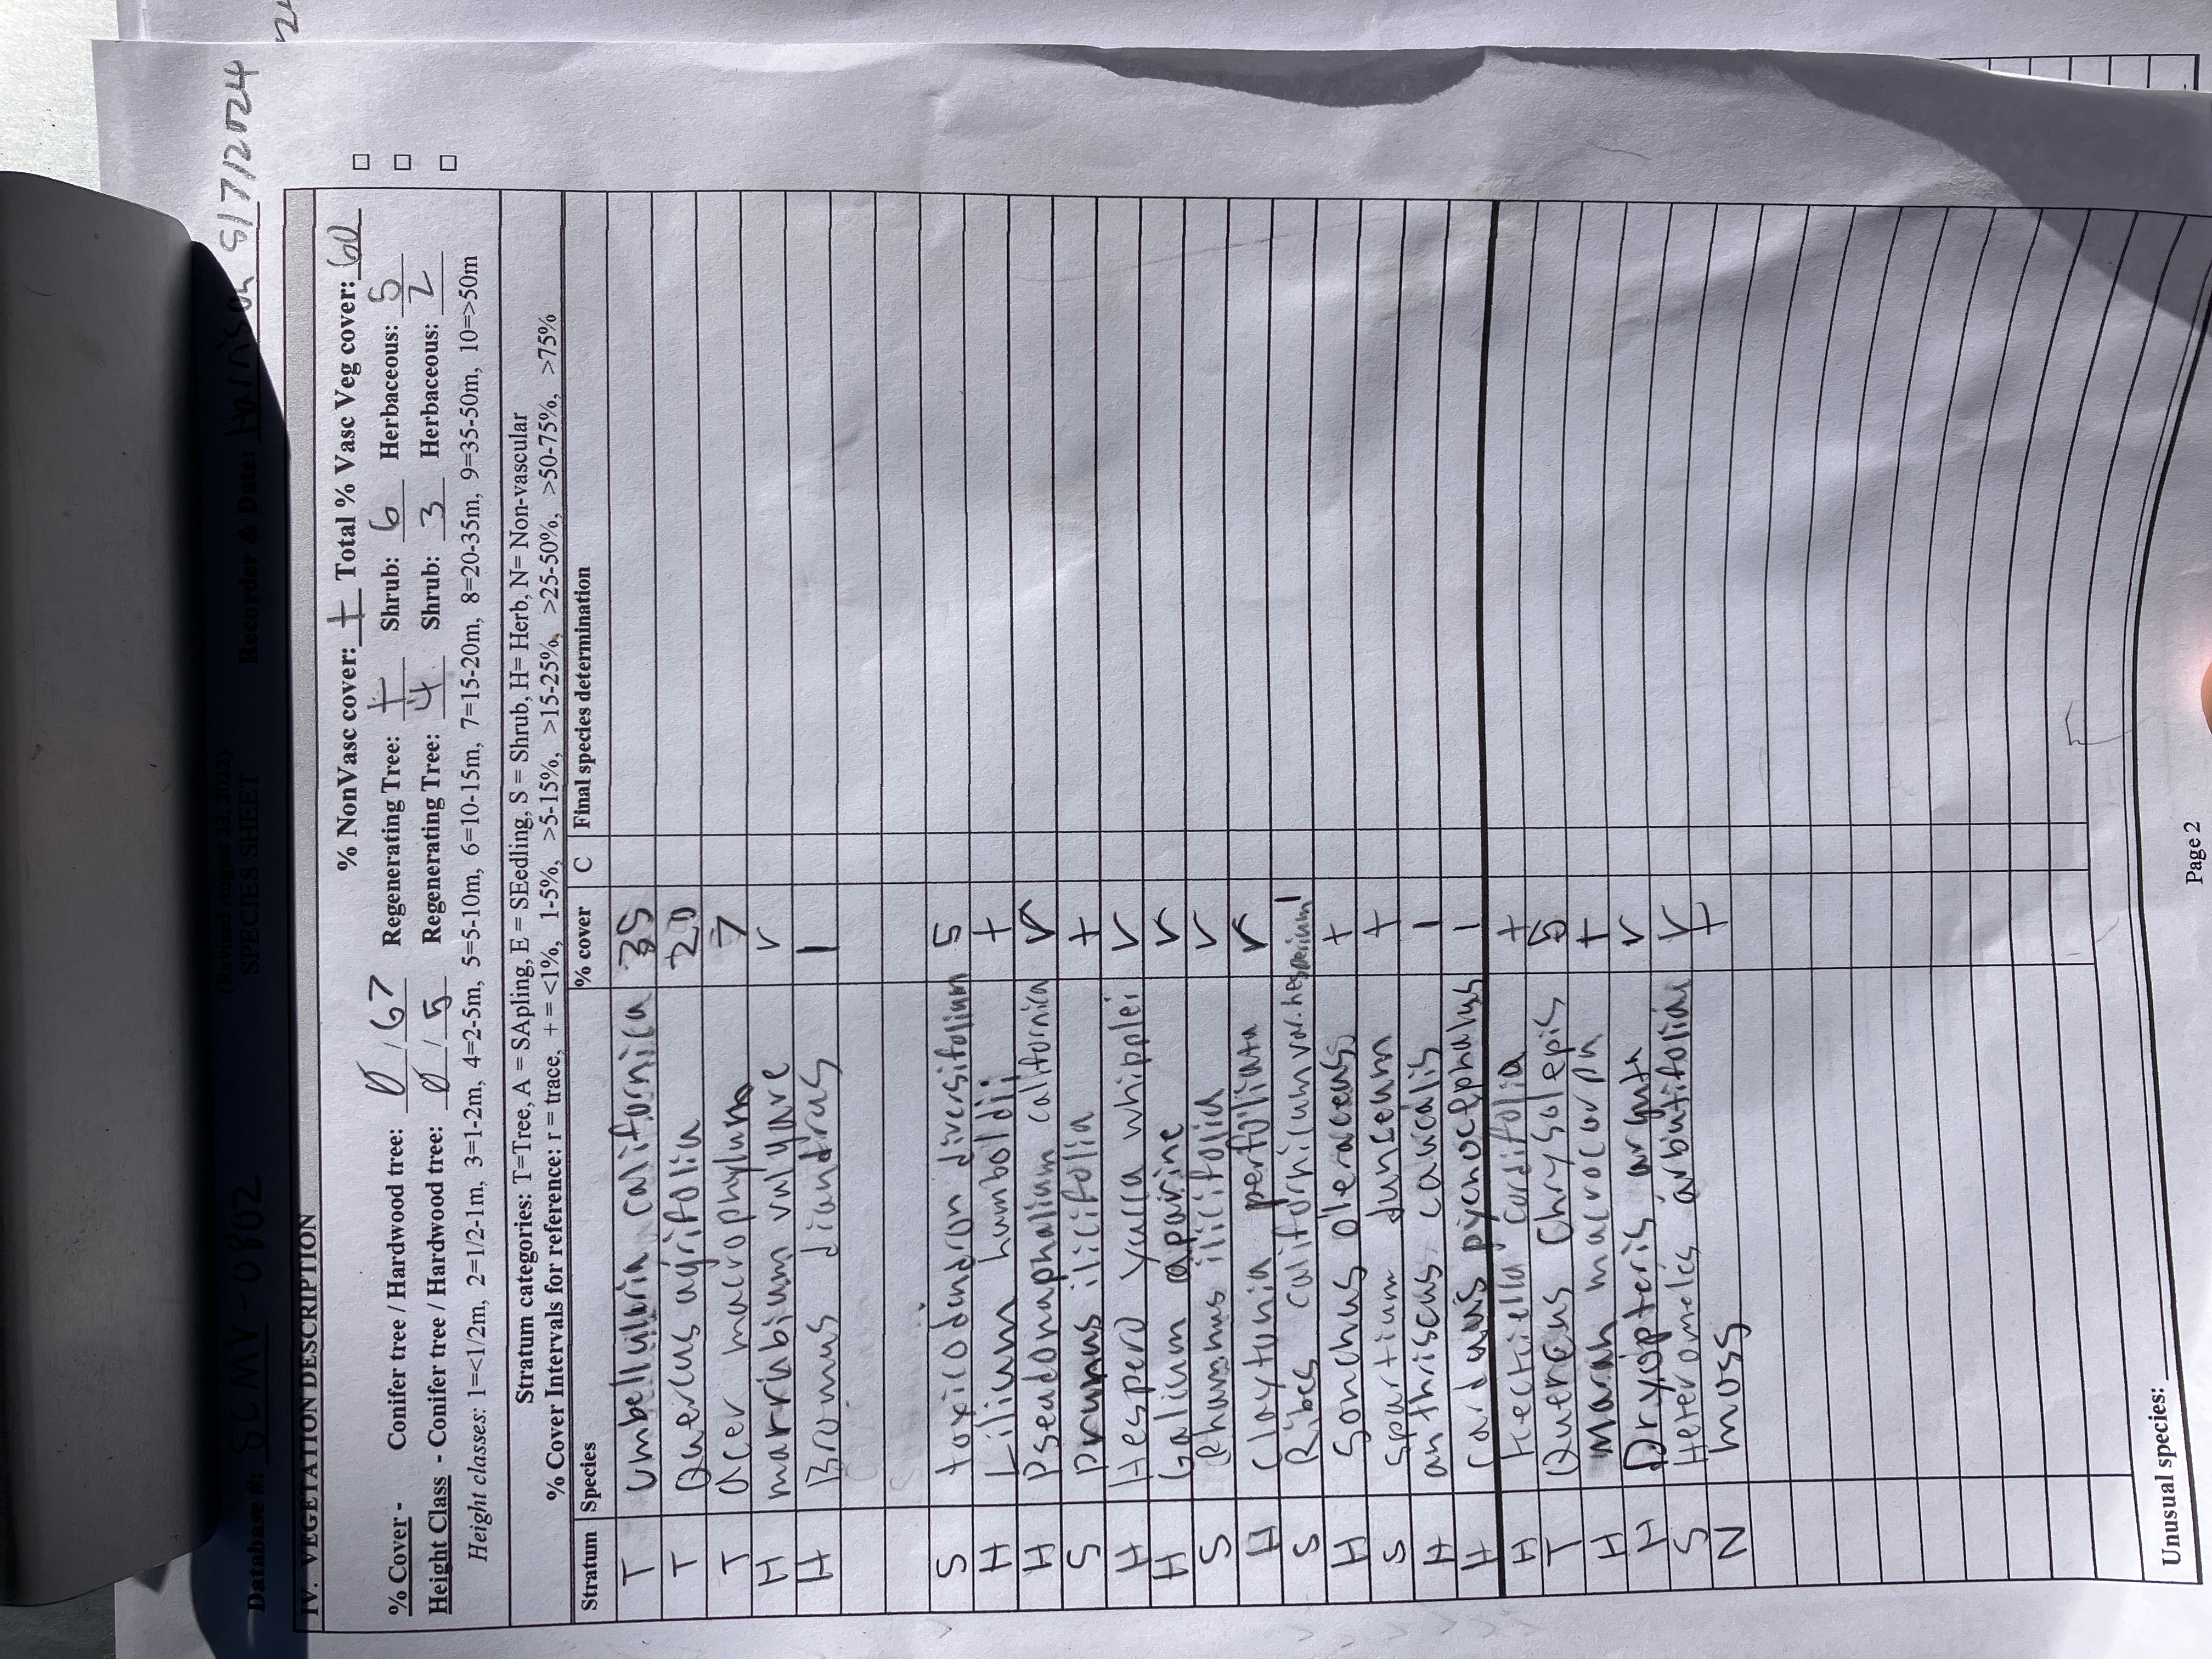 (Revised August 23, 2022)
Database #: SCMV-0802 SPECIES SHEET Recorder & Date: Harrison 5/7/2024
IV. VEGETATION DESCRIPTION
% NonVasc cover: + Total % Vasc Veg cover: 60
% Cover - Conifer tree / Hardwood tree: 0 / 67 Regenerating Tree: + Shrub: 6 Herbaceous: 5
Height Class - Conifer tree / Hardwood tree: 0 / 5 Regenerating Tree: 4 Shrub: 3 Herbaceous: 2
Height classes: 1=<1/2m, 2=1/2-1m, 3=1-2m, 4=2-5m, 5=5-10m, 6=10-15m, 7=15-20m, 8=20-35m, 9=35-50m, 10=>50m
Stratum categories: T=Tree, A = SApling, E = SEedling, S = Shrub, H= Herb, N= Non-vascular
% Cover Intervals for reference: r = trace, + = <1%, 1-5%, >5-15%, >15-25%, >25-50%, >50-75%, >75%
Stratum Species % cover C Final species determination
T Umbellularia californica 35
T Quercus agrifolia 20
T Acer macrophyllum 7
H marrubium vulgare r
H Bromus diandrus 1
S toxicodendron diversifolium 5
H Lilium humboldii +
H Pseudonaphalium californica r
S prunus ilicifolia +
H Hespero yucca whipplei r
H Galium aparine r
S Rhamnus ilicifolia r
H Claytonia perfoliata r
S Ribes californicum var. hesperium 1
H Sonchus oleraceus +
S spartium junceum +
H anthriscus caucalis 1
H Carduus pycnocephalus 1
H Keckiella cordifolia +
T Quercus Chrysolepis 5
H Marah macrocarpa +
H Dryopteris arguta r
S Heteromeles arbutifolia r
N moss +
Unusual species:
Page 2